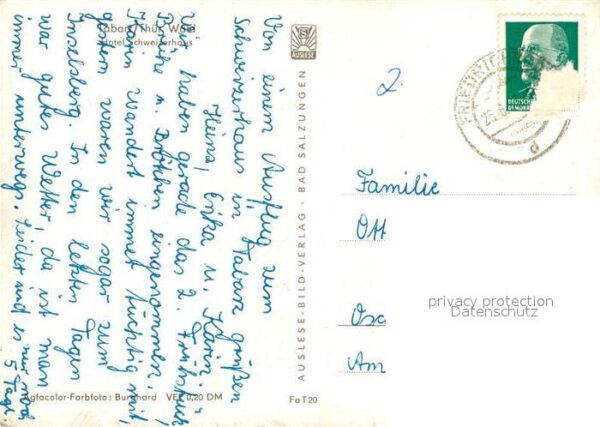 Tabarz/Thür. Wald
Hotel Schweizerhaus
Von einem Ausflug zum
Schweizerhaus in Tabarz grüßen
Heinz, Erika u. Karin.
Wir haben gerade das 2. Frühstück
Brühe u. Brötchen eingenommen.
Karin wandert immer tüchtig mit,
gestern waren wir sogar zum
Inselsberg. In den letzten Tagen
war gutes Wetter, da ist man
immer unterwegs. Leider sind es nur noch
5 Tage
Agfacolor-Farbfoto: Burghard VEB 0,20 DM
AUSLESE
AUSLESE-BILD-VERLAG · BAD SALZUNGEN
Fa T 20
2.
FRIEDRICH
DEUTSCHE
DEMOKR
d
Familie
Ott
Osc
Am
privacy protection
Datenschutz